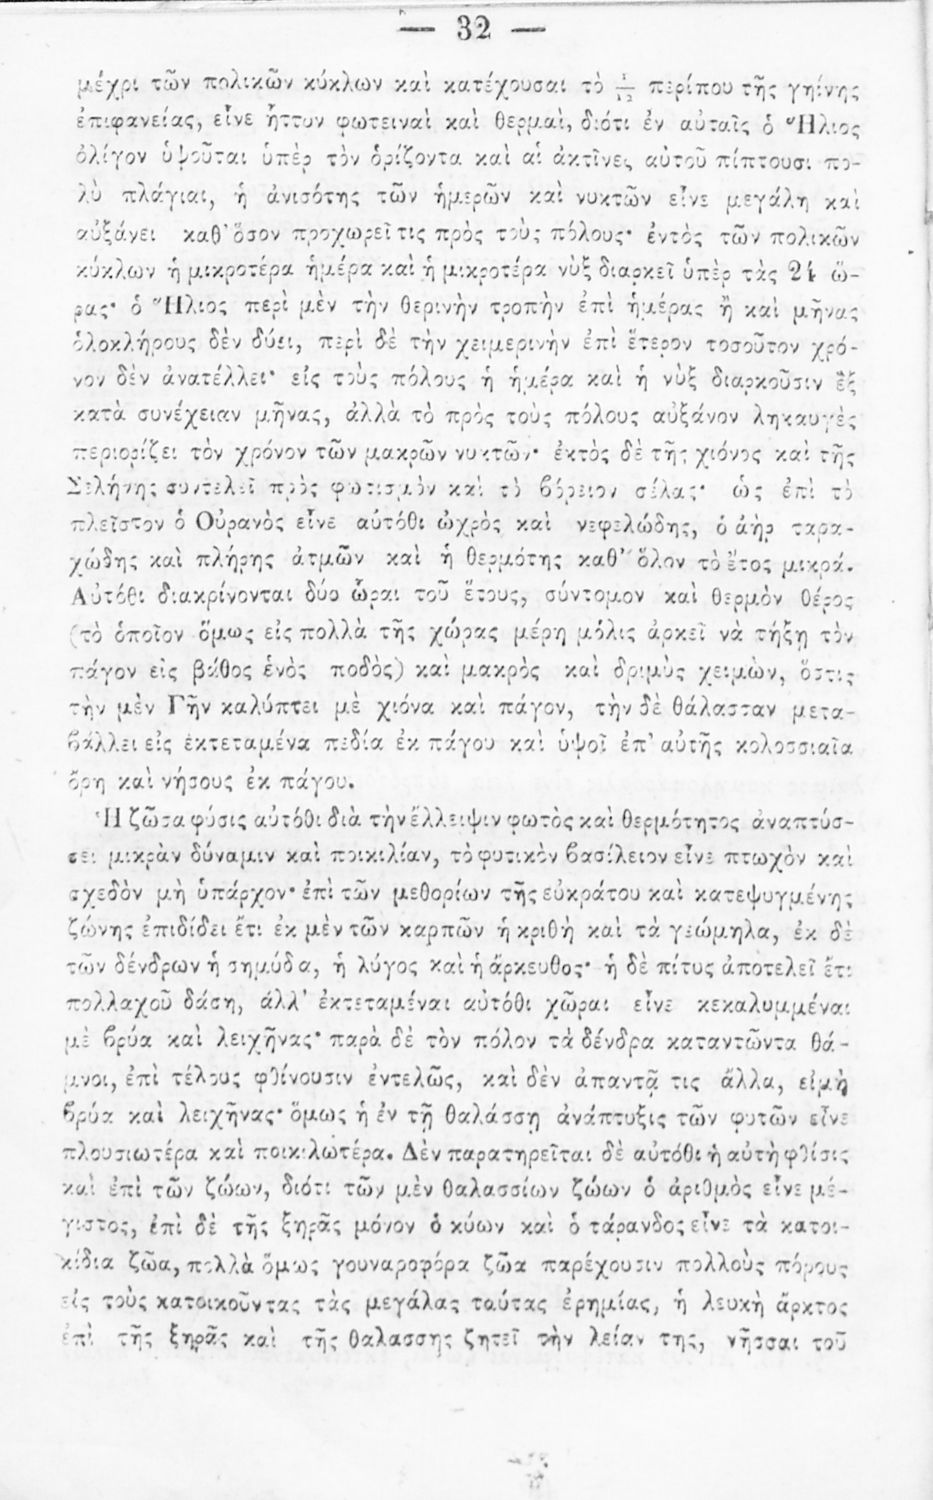 — 32 —
μέχρι τῶν πολικῶν κύκλων καὶ κατέχουσαι τὸ 1/12 περίπου τῆς γηίνης
ἐπιφανείας, εἶνε ἧττον φωτειναὶ καὶ θερμαὶ, διότι ἐν αὐταῖς ὁ Ἥλιος
ὀλίγον ὑψοῦται ὑπὲρ τὸν ὁρίζοντα καὶ αἱ ἀκτῖνες αὐτοῦ πίπτουσι πο-
λὺ πλάγιαι, ἡ ἀνισότης τῶν ἡμερῶν καὶ νυκτῶν εἶνε μεγάλη καὶ
αὐξάνει καθ' ὅσον προχωρεῖ τις πρὸς τοὺς πόλους· ἐντὸς τῶν πολικῶν
κύκλων ἡ μικροτέρα ἡμέρα καὶ ἡ μικροτέρα νὺξ διαρκεῖ ὑπὲρ τὰς 24 ὥ-
ρας· ὁ Ἥλιος περὶ μὲν τὴν θερινὴν τροπὴν ἐπὶ ἡμέρας ἢ καὶ μῆνας
ὁλοκλήρους δὲν δύει, περὶ δὲ τὴν χειμερινὴν ἐπὶ ἕτερον τοσοῦτον χρό-
νον δὲν ἀνατέλλει· εἰς τοὺς πόλους ἡ ἡμέρα καὶ ἡ νὺξ διαρκοῦσιν ἓξ
κατὰ συνέχειαν μῆνας, ἀλλὰ τὸ πρὸς τοὺς πόλους αὐξάνον ληκαυγὲς
περιορίζει τὸν χρόνον τῶν μακρῶν νυκτῶν· ἐκτὸς δὲ τῆς χιόνος καὶ τῆς
Σελήνης συντελεῖ πρὸς φωτισμὸν καὶ τὸ βόρειον σέλας· ὡς ἐπὶ τὸ
πλεῖστον ὁ Οὐρανὸς εἶνε αὐτόθι ὠχρὸς καὶ νεφελώδης, ὁ ἀὴρ ταρα-
χώδης καὶ πλήρης ἀτμῶν καὶ ἡ θερμότης καθ' ὅλον τὸ ἔτος μικρά.
Αὐτόθι διακρίνονται δύο ὧραι τοῦ ἔτους, σύντομον καὶ θερμὸν θέρος
(τὸ ὁποῖον ὅμως εἰς πολλὰ τῆς χώρας μέρη μόλις ἀρκεῖ νὰ τήξῃ τὸν
πάγον εἰς βάθος ἑνὸς ποδὸς) καὶ μακρὸς καὶ δριμὺς χειμὼν, ὅστις
τὴν μὲν Γῆν καλύπτει μὲ χιόνα καὶ πάγον, τὴν δὲ θάλασσαν μετα-
βάλλει εἰς ἐκτεταμένα πεδία ἐκ πάγου καὶ ὑψοῖ ἐπ' αὐτῆς κολοσσιαῖα
ὄρη καὶ νήσους ἐκ πάγου.
Ἡ ζῶσα φύσις αὐτόθι διὰ τὴν ἔλλειψιν φωτὸς καὶ θερμότητος ἀναπτύσ-
σει μικρὰν δύναμιν καὶ ποικιλίαν, τὸ φυτικὸν βασίλειον εἶνε πτωχὸν καὶ
σχεδὸν μὴ ὑπάρχον· ἐπὶ τῶν μεθορίων τῆς εὐκράτου καὶ κατεψυγμένης
ζώνης ἐπιδίδει ἔτι ἐκ μὲν τῶν καρπῶν ἡ κριθὴ καὶ τὰ γεώμηλα, ἐκ δὲ
τῶν δένδρων ἡ σημύδα, ἡ λύγος καὶ ἡ ἄρκευθος· ἡ δὲ πίτυς ἀποτελεῖ ἔτι
πολλαχοῦ δάση, ἀλλ' ἐκτεταμέναι αὐτόθι χῶραι εἶνε κεκαλυμμέναι
μὲ βρύα καὶ λειχῆνας· παρὰ δὲ τὸν πόλον τὰ δένδρα καταντῶντα θά-
μνοι, ἐπὶ τέλους φθίνουσιν ἐντελῶς, καὶ δὲν ἀπαντᾷ τις ἄλλα, εἰμὴ
βρύα καὶ λειχῆνας· ὅμως ἡ ἐν τῇ θαλάσσῃ ἀνάπτυξις τῶν φυτῶν εἶνε
πλουσιωτέρα καὶ ποικιλωτέρα. Δὲν παρατηρεῖται δὲ αὐτόθι ἡ αὐτὴ φθίσις
καὶ ἐπὶ τῶν ζώων, διότι τῶν μὲν θαλασσίων ζώων ὁ ἀριθμὸς εἶνε μέ-
γιστος, ἐπὶ δὲ τῆς ξηρᾶς μόνον ὁ κύων καὶ ὁ τάρανδος εἶνε τὰ κατοι-
κίδια ζῶα, πολλὰ ὅμως γουναροφόρα ζῶα παρέχουσιν πολλοὺς πόρους
εἰς τοὺς κατοικοῦντας τὰς μεγάλας ταύτας ἐρημίας, ἡ λευκὴ ἄρκτος
ἐπὶ τῆς ξηρᾶς καὶ τῆς θαλασσης ζητεῖ τὴν λείαν της, νῆσσαι τοῦ